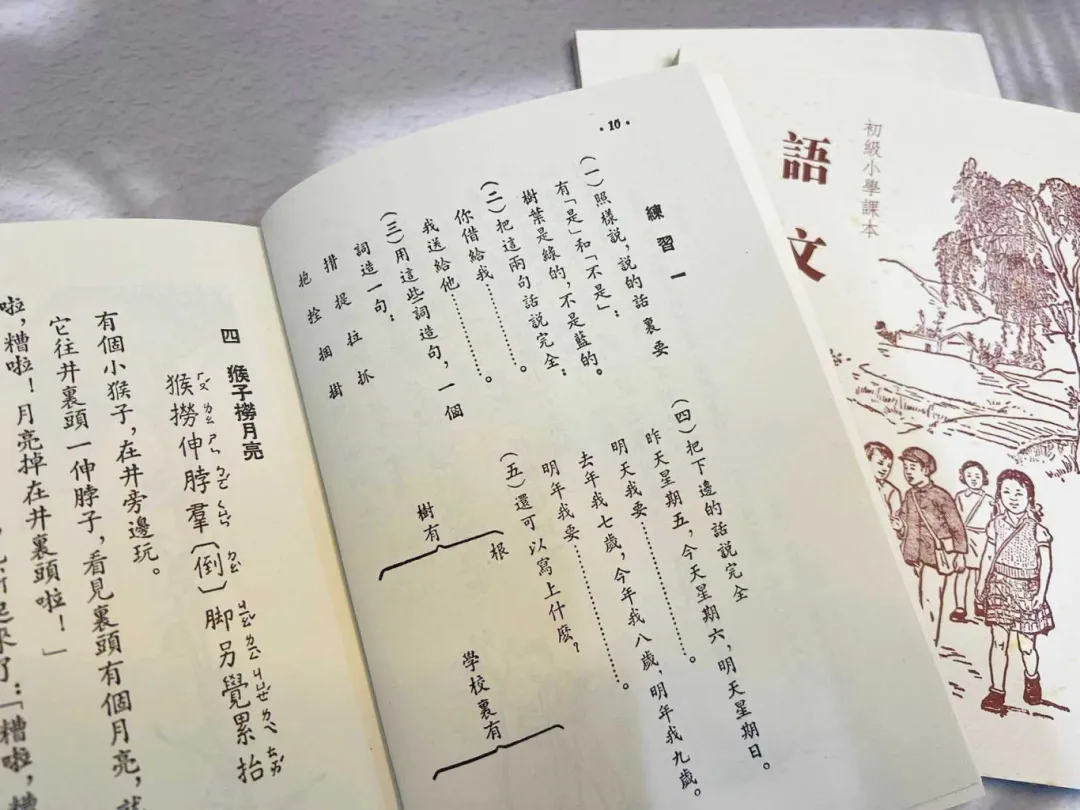 初級小學課本
語文
·10·
練習一
(一)照樣說,說的話裏要
有「是」和「不是」:
樹葉是綠的,不是藍的。
(二)把這兩句話說完全:
你借給我…………。
我送給他…………。
(三)用這些詞造句,一個
詞造一句:
提 拉 抓
抱 拴 捆
(四)把下邊的話說完全
昨天星期五,今天星期六,明天星期日。
明天我要…………。
去年我七歲,今年我八歲,明年我九歲。
明年我要…………。
(五)還可以寫上什麽?
樹有
根
學校裏有
四 猴子撈月亮
猴撈伸脖羣(倒)脚另覺累抬
有個小猴子,在井旁邊玩。
它往井裏頭一伸脖子,看見裏頭有個月亮,就
啦,糟啦!月亮掉在井裏頭啦!」
起來了:「糟啦,